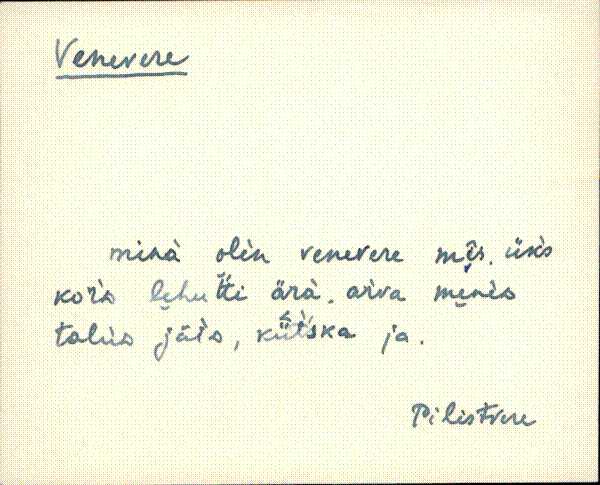 Venevere
minà olèn venevere mẹ̑s. üks̀
kor̀s lẹhuťti ärà. arva mẹnès
talùs jäìs, küt̀ska ja.
Pilistvere